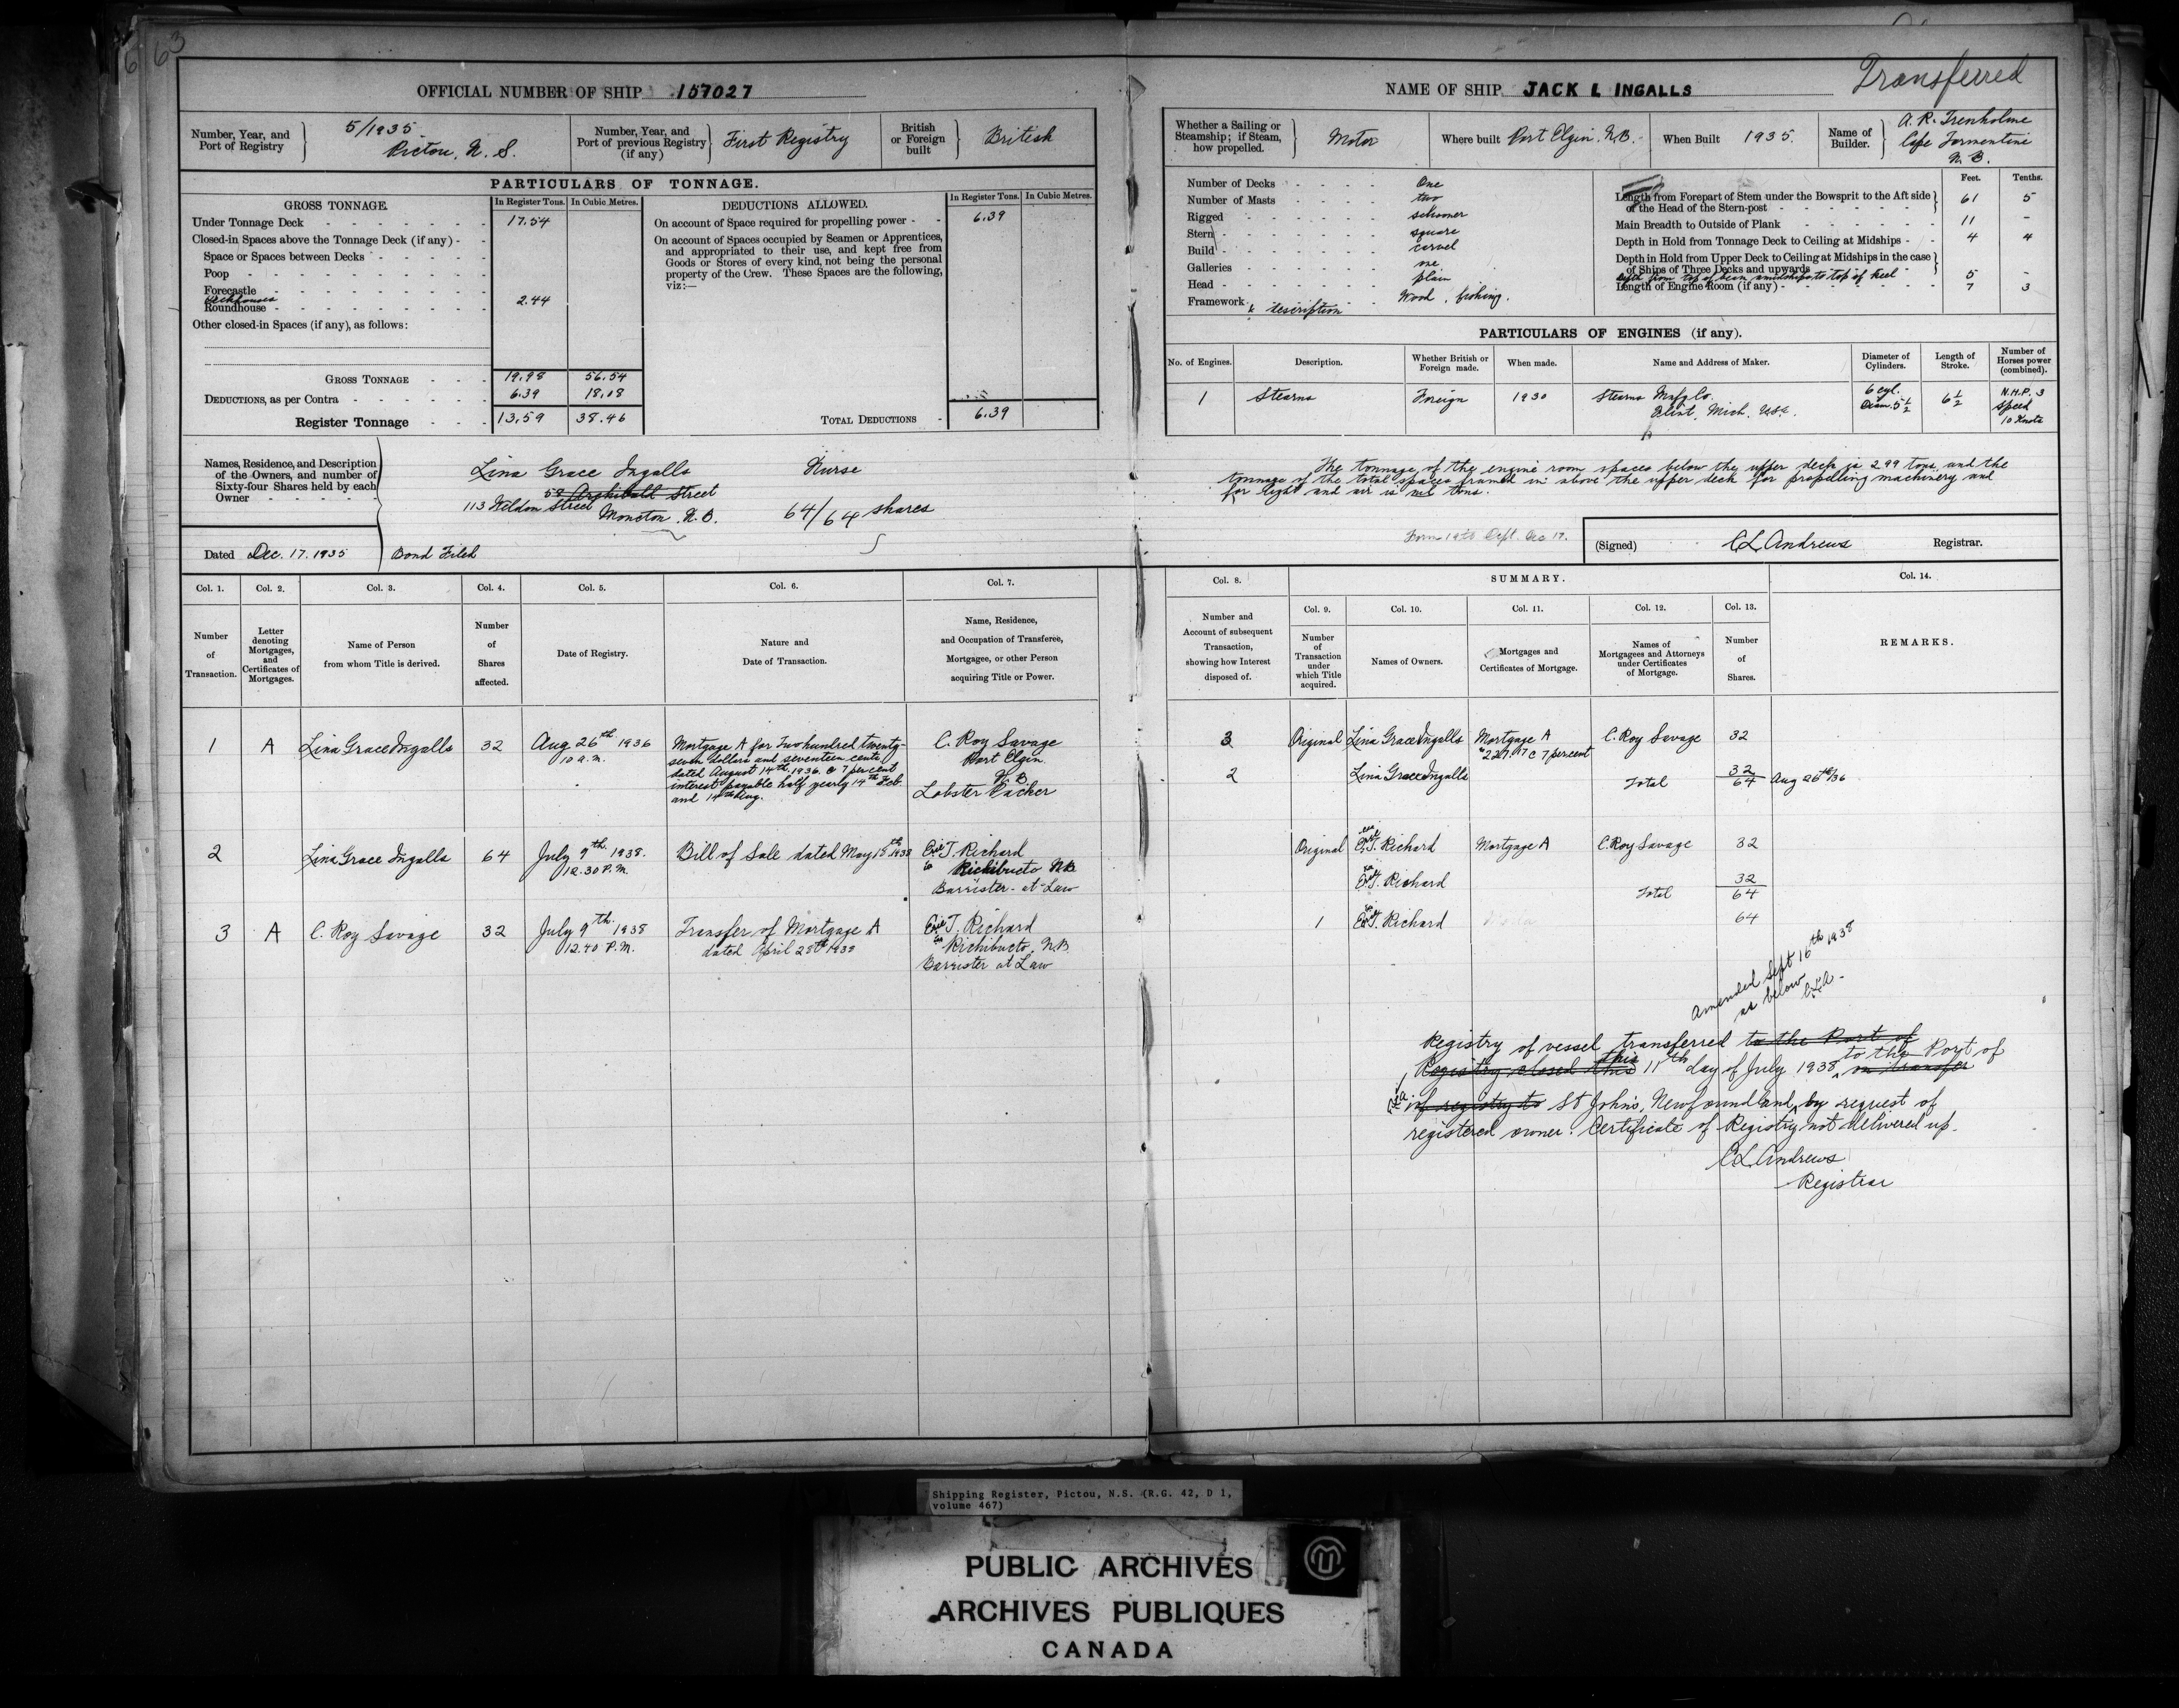 63
Transferred
OFFICIAL NUMBER OF SHIP 157027
NAME OF SHIP JACK L INGALLS
Number, Year, and Port of Registry
5/1935
Pictou, N. S.
Number, Year, and Port of previous Registry (if any)
First Registry
British or Foreign built
British
PARTICULARS OF TONNAGE.
GROSS TONNAGE
In Register Tons.
In Cubic Metres.
Under Tonnage Deck 17.54
Closed-in Spaces above the Tonnage Deck (if any)
Space or Spaces between Decks
Poop
Forecastle
Deckhouses
Roundhouse 2.44
Other closed-in Spaces (if any), as follows:
GROSS TONNAGE 19.98 56.54
DEDUCTIONS, as per Contra 6.39 18.08
Register Tonnage 13.59 38.46
DEDUCTIONS ALLOWED.
In Register Tons.
In Cubic Metres.
On account of Space required for propelling power 6.39
On account of Spaces occupied by Seamen or Apprentices,
and appropriated to their use, and kept free from
Goods or Stores of every kind, not being the personal
property of the Crew. These Spaces are the following,
viz:—
TOTAL DEDUCTIONS 6.39
Names, Residence, and Description
of the Owners, and number of
Sixty-four Shares held by each
Owner
Lina Grace Ingalls Nurse
Archibald Street
113 Weldon Street
Moncton. N. B. 64/64 shares
Dated Dec. 17. 1935
Bond Filed
Whether a Sailing or Steamship; if Steam, how propelled.
Motor
Where built Port Elgin. N.B.
When Built 1935.
Name of Builder.
A. R. Trenholme
Cape Tormentine
N. B.
Number of Decks One
Number of Masts two
Rigged schooner
Stern square
Build carvel
Galleries one
Head plain
Framework & description Wood, fishing.
Feet. Tenths.
Length from Forepart of Stem under the Bowsprit to the Aft side
of the Head of the Stern-post 61 5
Main Breadth to Outside of Plank 11 -
Depth in Hold from Tonnage Deck to Ceiling at Midships 4 4
Depth in Hold from Upper Deck to Ceiling at Midships in the case
of Ships of Three Decks and upwards
Depth from top of beam amidships to top of keel 5 -
Length of Engine Room (if any) 7 3
PARTICULARS OF ENGINES (if any).
No. of Engines.
Description.
Whether British or Foreign made.
When made.
Name and Address of Maker.
Diameter of Cylinders.
Length of Stroke.
Number of Horses power (combined).
1 Stearns Foreign 1930 Stearns Mafg Co.
Flint, Mich. USA.
6 cyl.
Diam. 5 1/2
6 1/2
N.H.P. 3
speed
10 Knots
The tonnage of the engine room spaces below the upper deck is 2.99 tons, and the
tonnage of the total spaces framed in above the upper deck for propelling machinery and
for light and air is nil tons.
(Signed) C L Andrews Registrar.
Col. 1.
Number of Transaction.
Col. 2.
Letter denoting Mortgages, and Certificates of Mortgages.
Col. 3.
Name of Person from whom Title is derived.
Col. 4.
Number of Shares affected.
Col. 5.
Date of Registry.
Col. 6.
Nature and Date of Transaction.
Col. 7.
Name, Residence, and Occupation of Transferee, Mortgagee, or other Person acquiring Title or Power.
Col. 8.
Number and Account of subsequent Transaction, showing how Interest disposed of.
SUMMARY.
Col. 9.
Number of Transaction under which Title acquired.
Col. 10.
Names of Owners.
Col. 11.
Mortgages and Certificates of Mortgage.
Col. 12.
Names of Mortgagees and Attorneys under Certificates of Mortgage.
Col. 13.
Number of Shares.
Col. 14.
REMARKS.
1 A Lina Grace Ingalls 32 Aug 26th 1936
10 a.m.
Mortgage A for Two hundred twenty-
seven dollars and seventeen cents
dated August 14th. 1936. @ 7 per cent
interest payable half yearly 14th Feb.
and 14th Aug.
C. Roy Savage
Port Elgin.
N.B.
Lobster Packer
2 Lina Grace Ingalls 64 July 9th. 1938.
12.30 P.M.
Bill of Sale dated May 15th 1938
T. Richard
Richibucto N.B
Barrister-at-Law
3 A C. Roy Savage 32 July 9th. 1938
12.40 P.M.
Transfer of Mortgage A
dated April 28th 1938
T. Richard
Richibucto, N.B.
Barrister at Law
3 Original Lina Grace Ingalls Mortgage A
$227.17 @ 7 percent
C. Roy Savage 32
2 Lina Grace Ingalls Total 32
64 Aug 26th/36
Original T. Richard Mortgage A C. Roy Savage 32
T. Richard 32
Total 64
1 T. Richard 64
Amended Sept 16th 1938
as below
C.L.A.
Registry of vessel transferred to the Port of
Registry closed this this 11th day of July 1938, to the Port of on transfer
of registry to St John's, Newfoundland, by request of
registered owner. Certificate of Registry not delivered up.
C L Andrews
Registrar
Shipping Register, Pictou, N.S. (R.G. 42, D 1,
volume 467)
PUBLIC ARCHIVES
ARCHIVES PUBLIQUES
CANADA